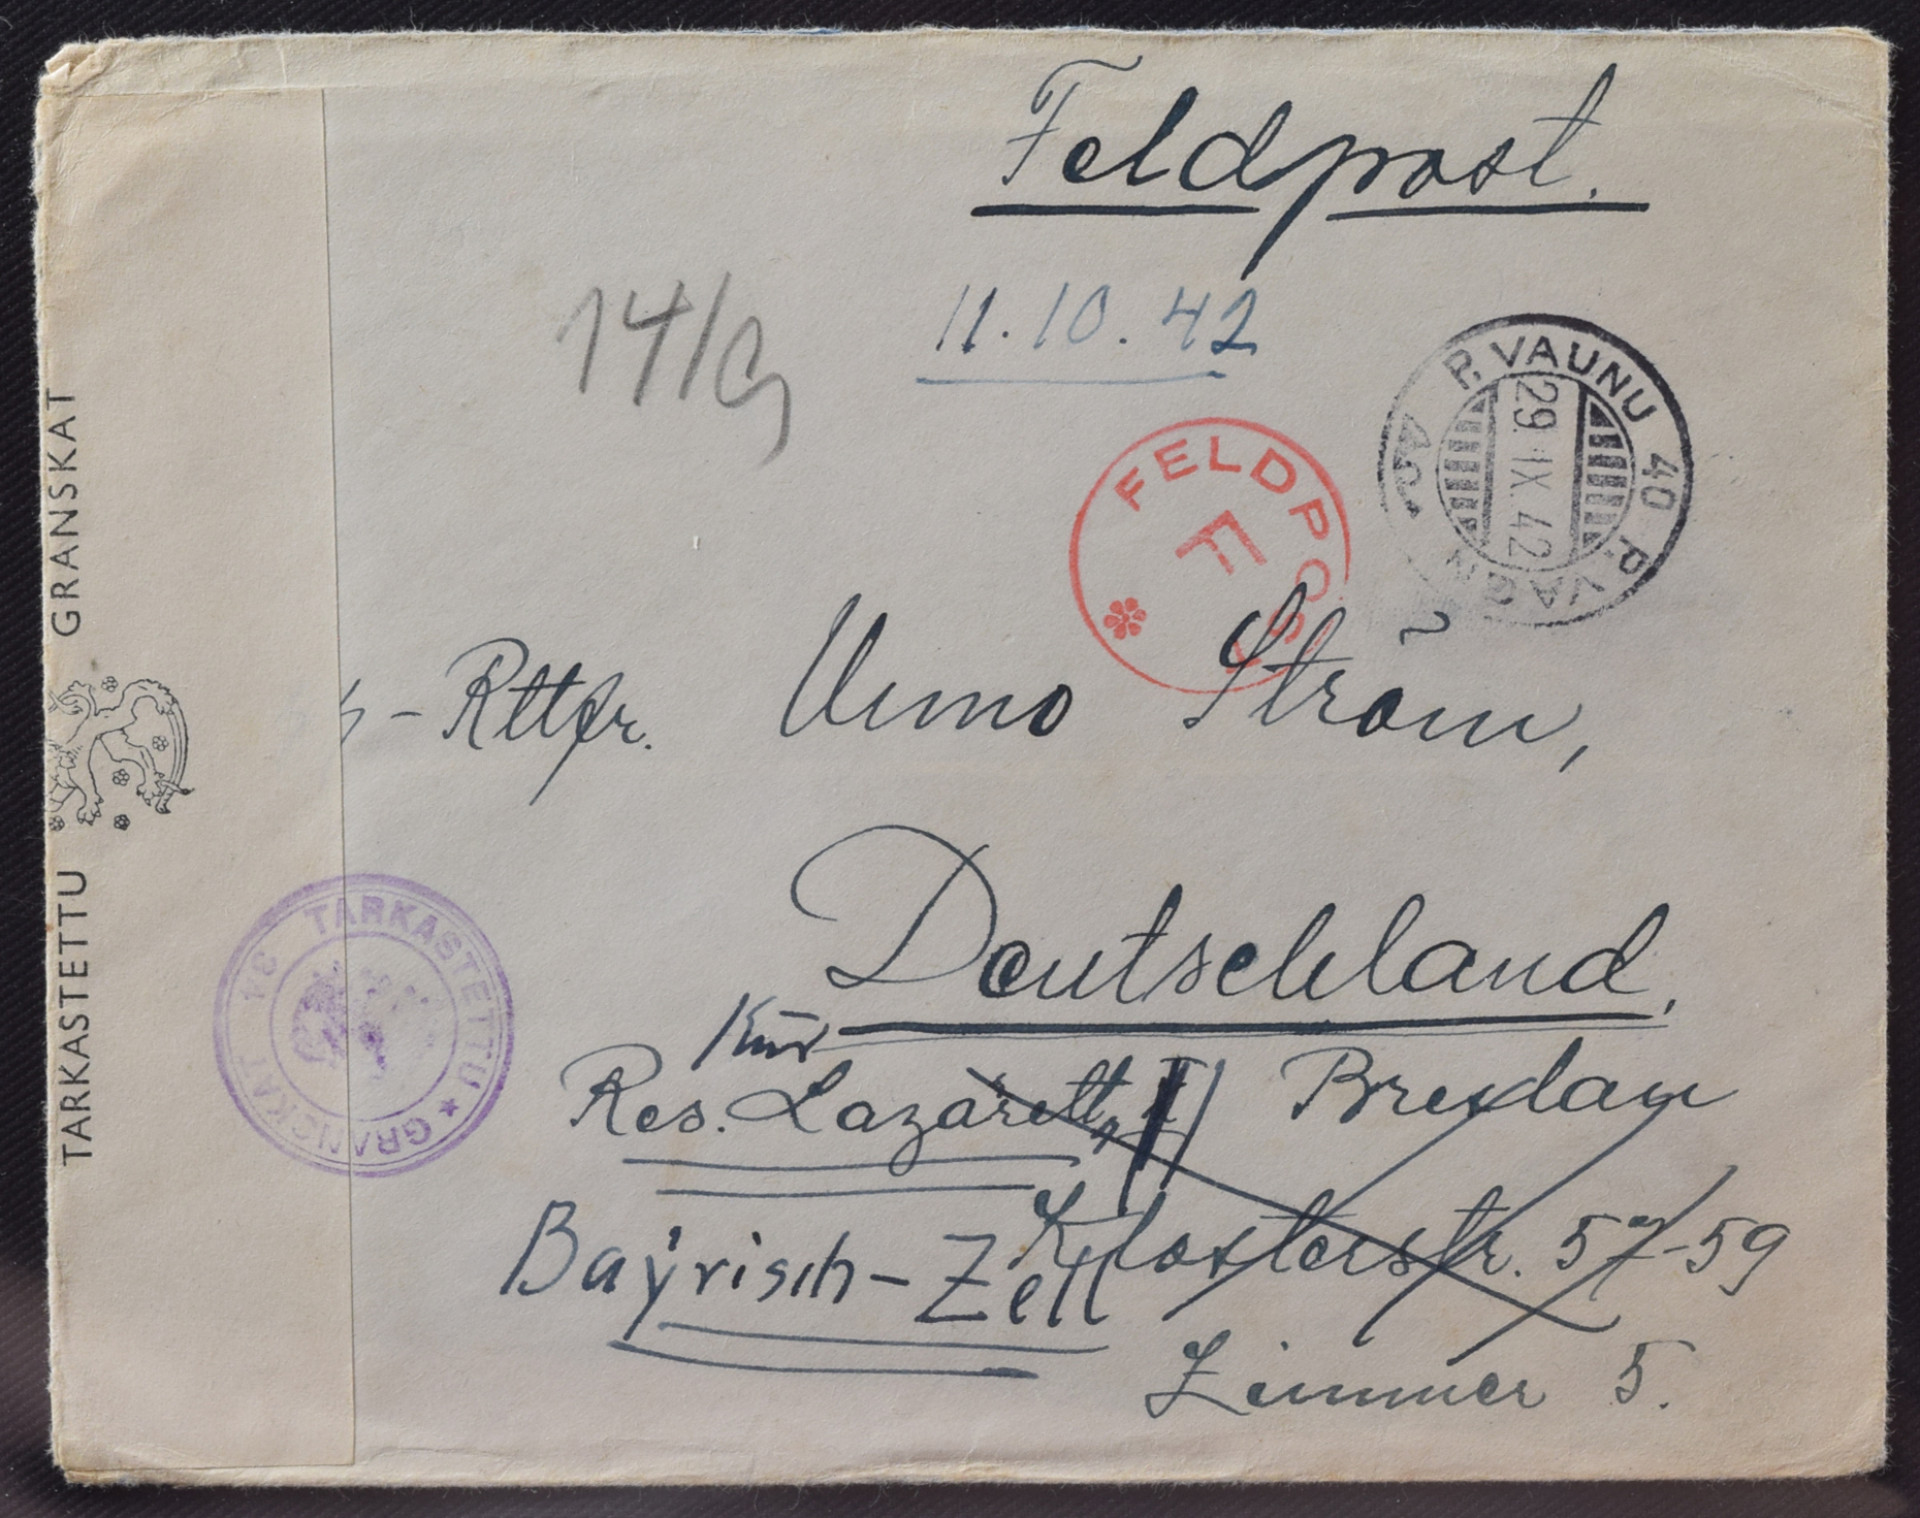 Feldpost.
14/9
11.10.42
P. VAUNU 40 P. VAGN
29. IX. 42
FELDPOST
F
- Rttfr. Uuno Strom,
Deutschland.
Kur
Res. Lazarett, Breslau
Klosterstr. 57-59
Bayrisch-Zell
Zimmer 5.
TARKASTETTU GRANSKAT
TARKASTETTU ★ GRANSKAT